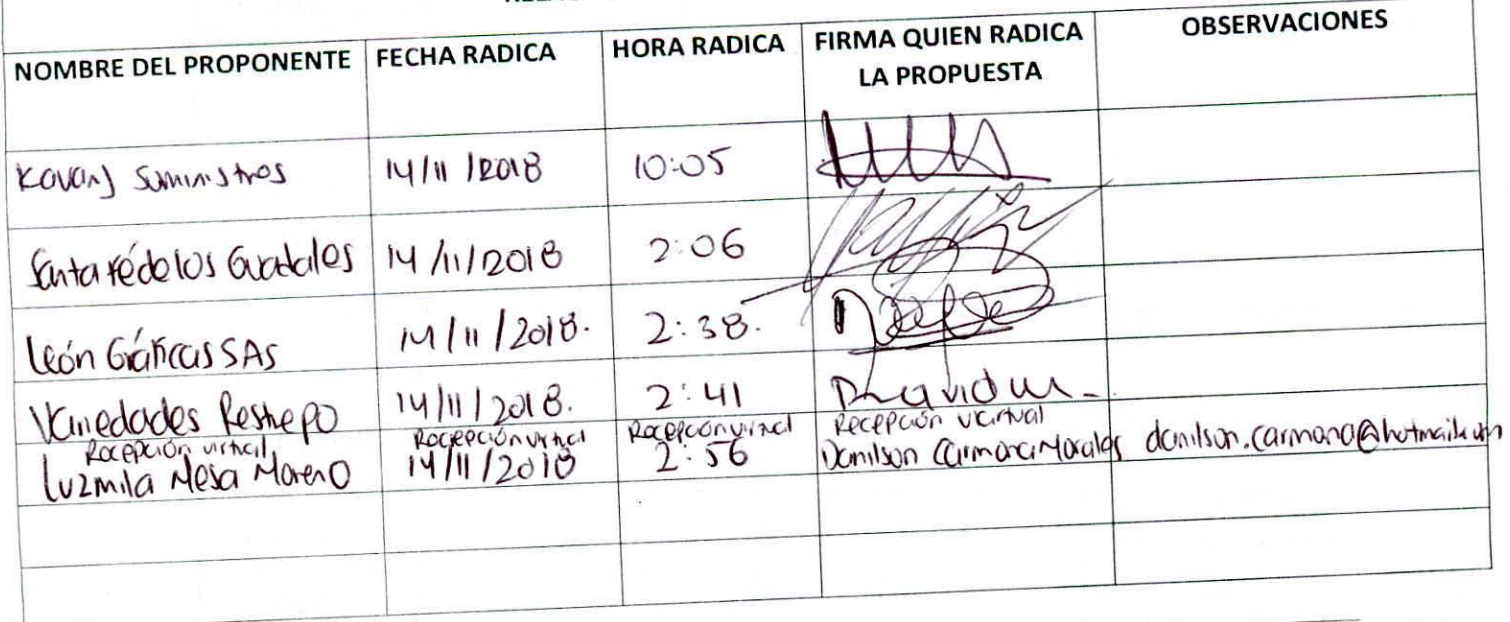 NOMBRE DEL PROPONENTE FECHA RADICA HORA RADICA FIRMA QUIEN RADICA LA PROPUESTA OBSERVACIONES
Suministros 14/11/2018 10:05
Santa fé de los Guaduales 14/11/2018 2:06
León Gráficas SAS 14/11/2018. 2:38.
Variedades Restrepo 14/11/2018. 2:41 David M.
Recepción virtual Recepción virtual Recepción virtual Recepción virtual
Luzmila Mesa Moreno 14/11/2018 2:56 Danilson Carmona Morales danilson.carmona@hotmail.com